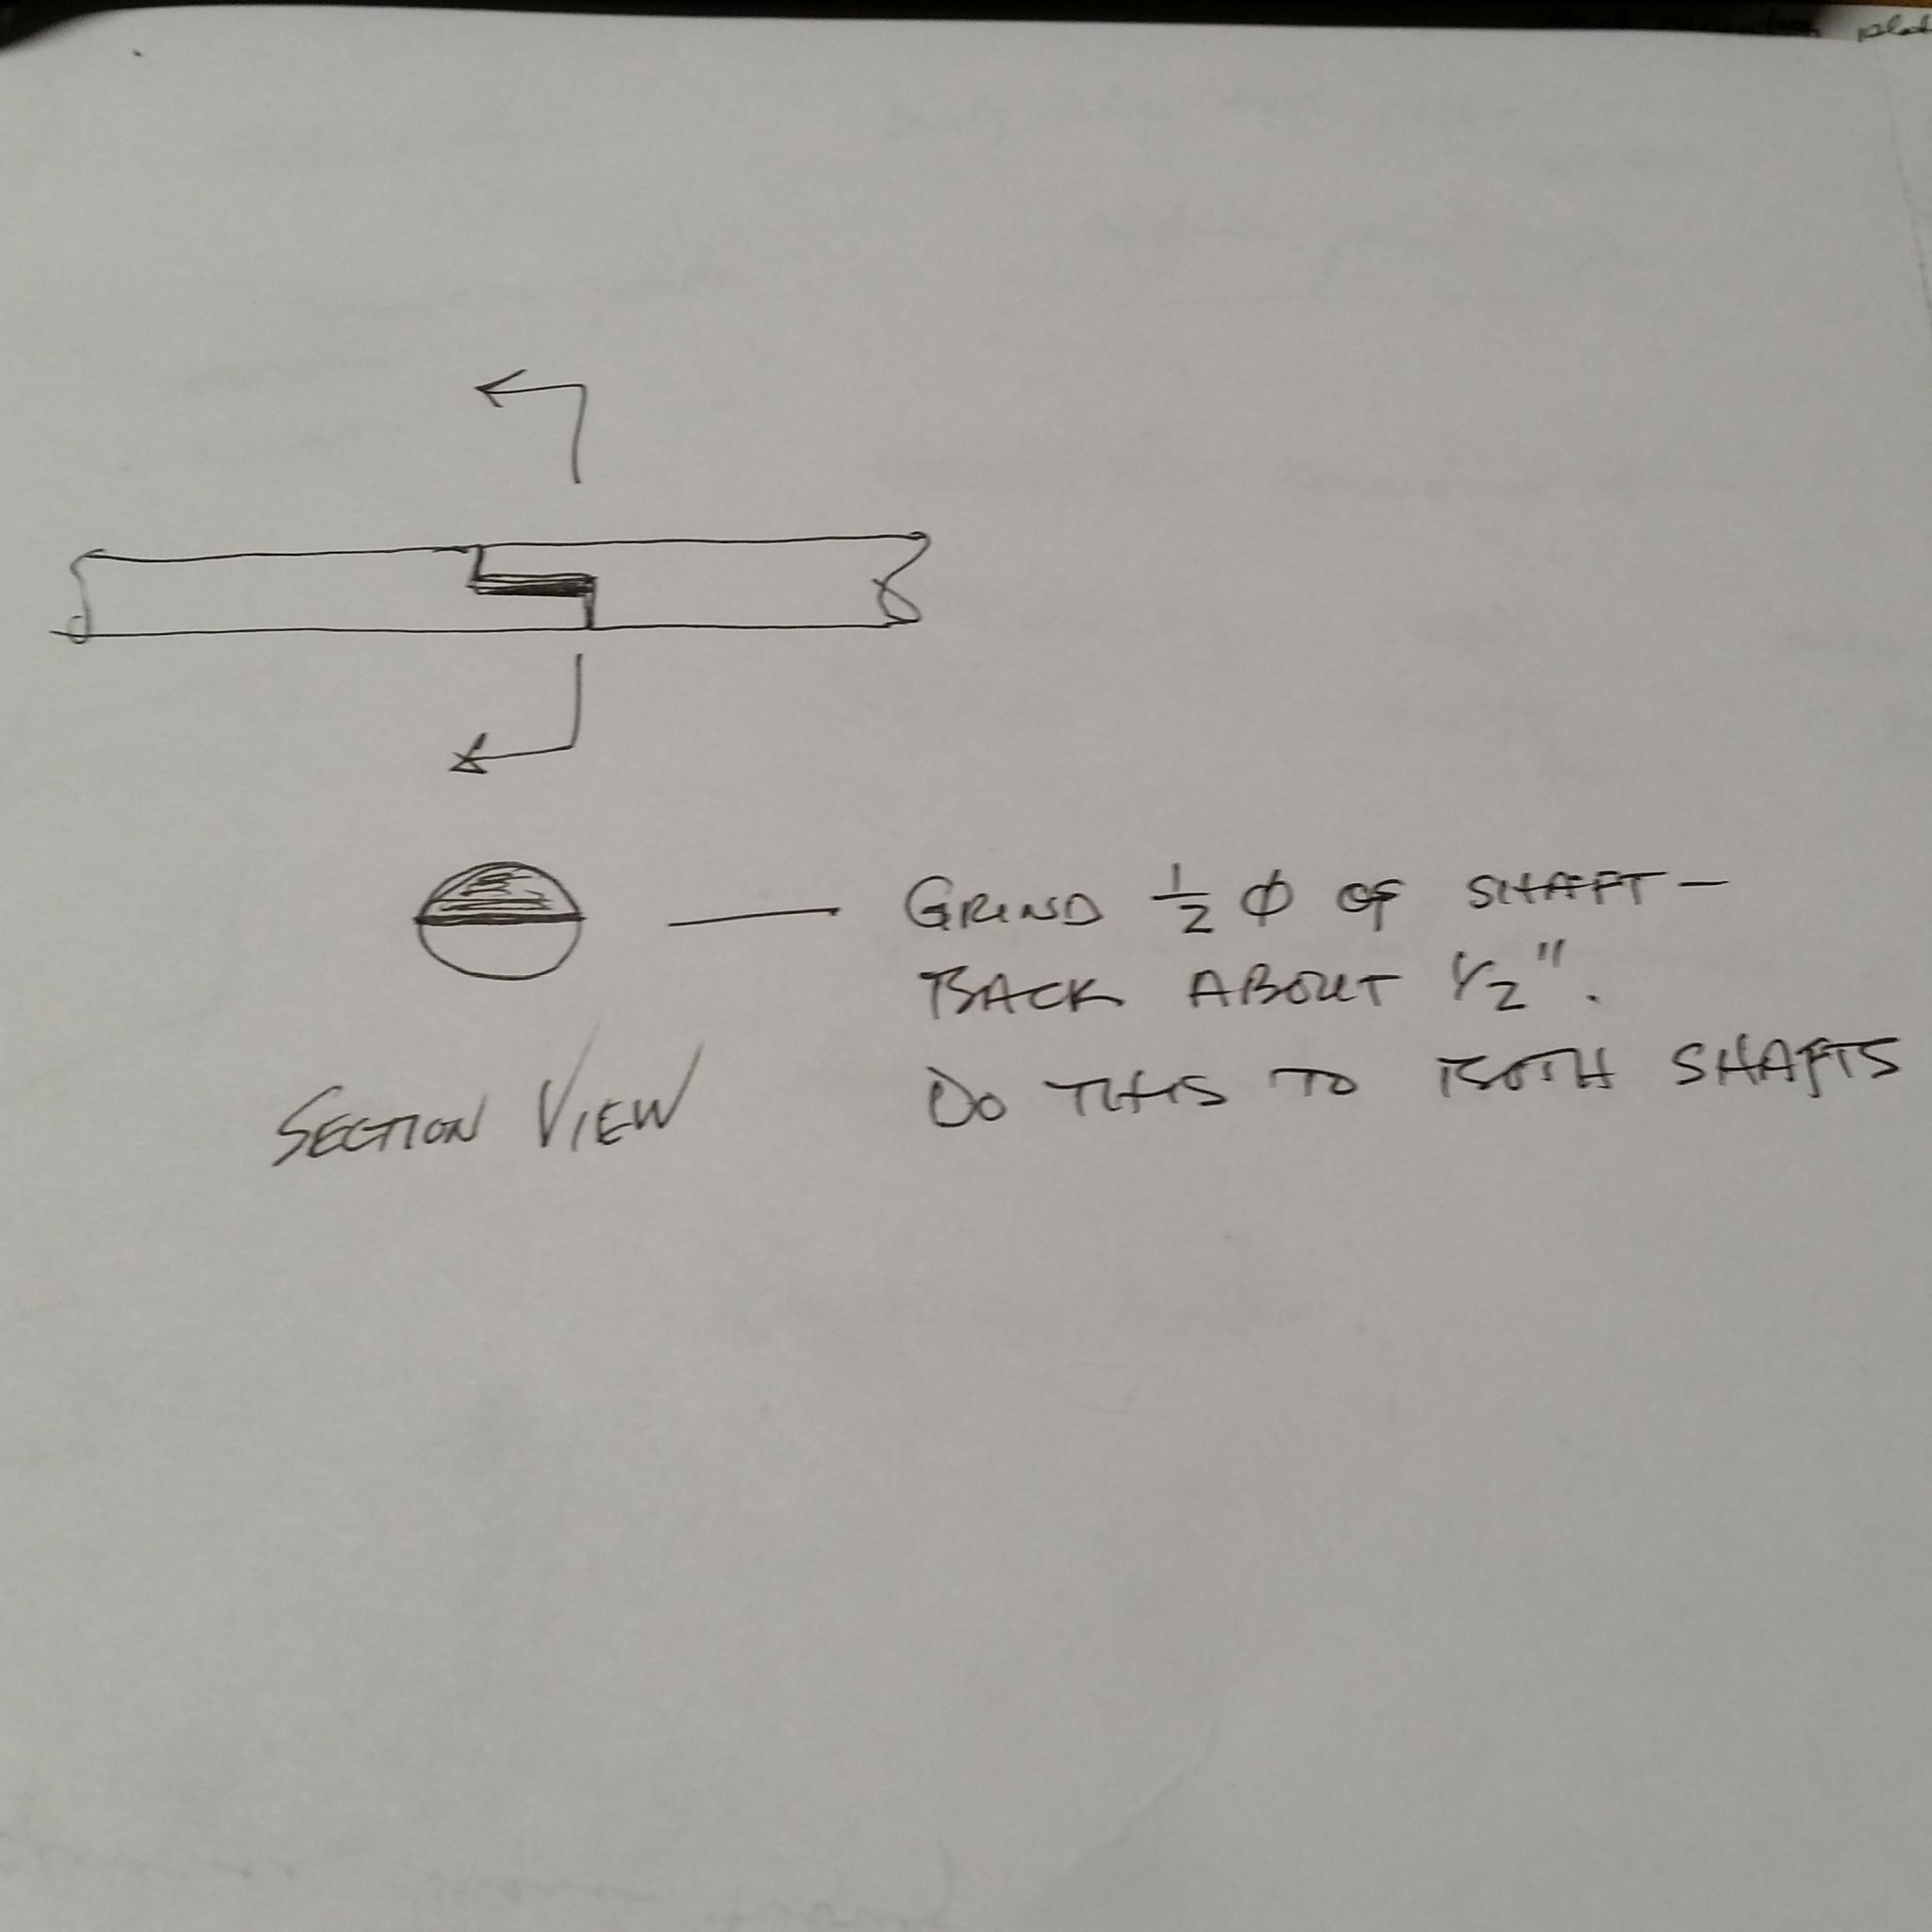 GRIND 1/2 ϕ OF SHAFT –
BACK ABOUT 1/2".
DO THIS TO BOTH SHAFTS
SECTION VIEW